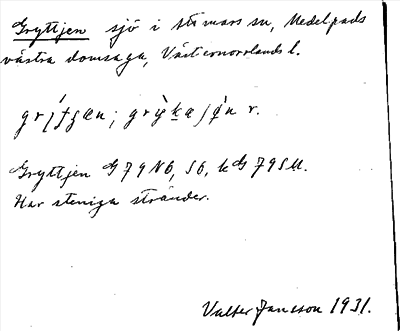 Gryttjen sjö i Stömars sn, Medelpads
västra domsaga, Västernorrlands l.
Gryttjen G 79 NO, SO, k G 79 SU.
Har steniga stränder.
Valter Jansson 1931.